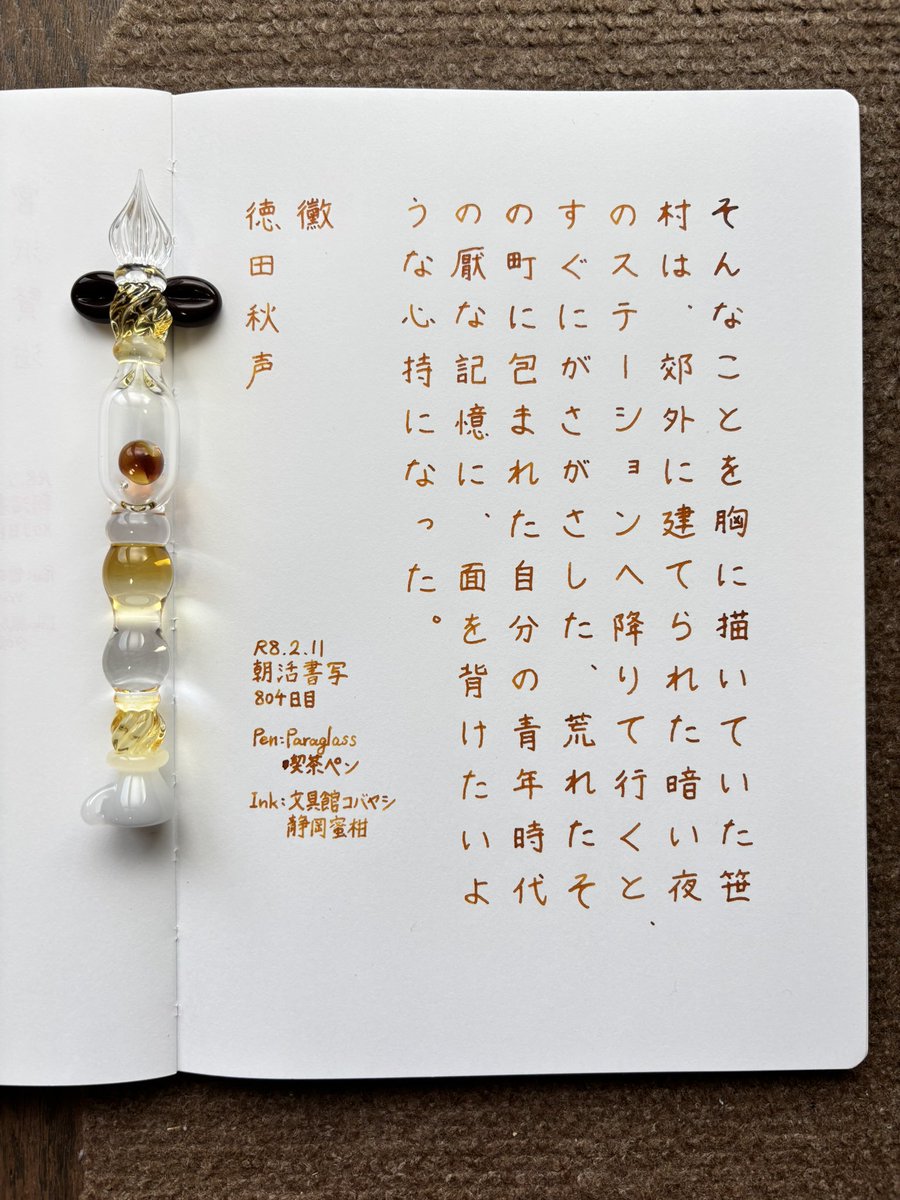 そんなことを胸に描いていた笹
村は、郊外に建てられた暗い夜
のステーションへ降りて行くと、
すぐにがさがさした、荒れたそ
の町に包まれた自分の青年時代
の厭な記憶に、面を背けたいよ
うな心持になった。
黴
徳田秋声
R8.2.11
朝活書写
804日目
Pen:Paraglass
喫茶ペン
Ink:文具館コバヤシ
静岡蜜柑